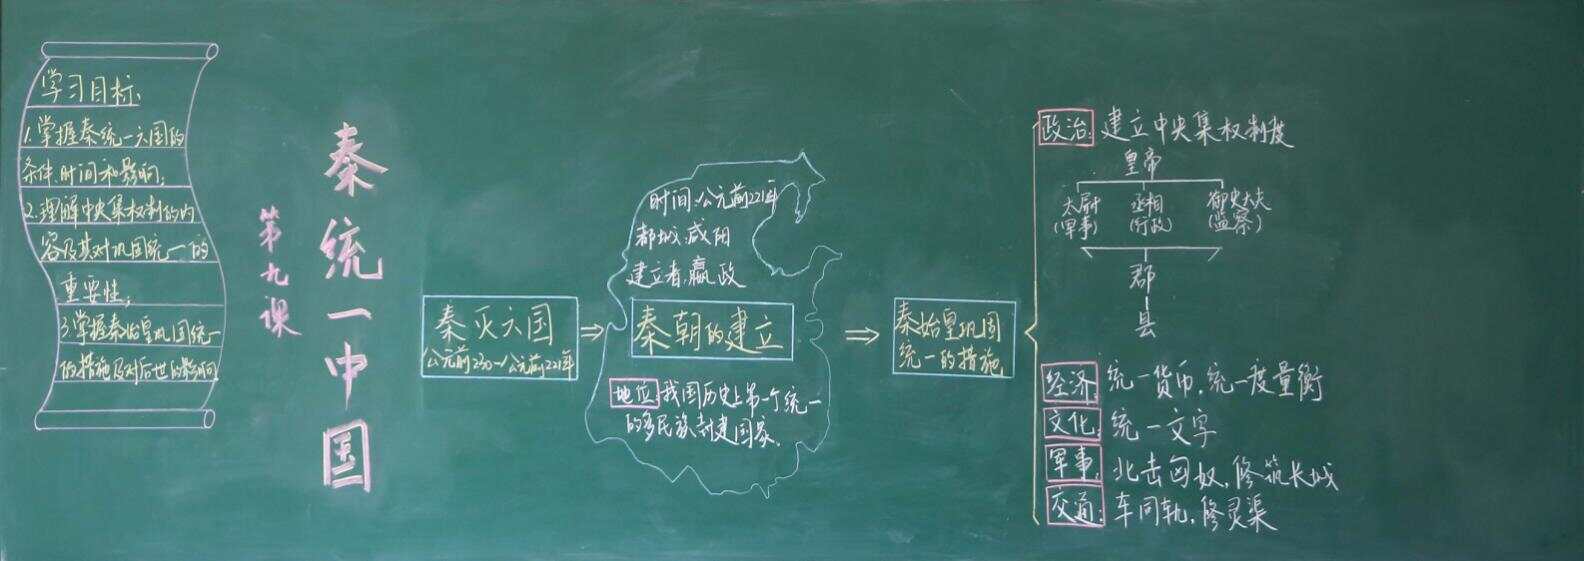 学习目标:
1.掌握秦统一六国的
条件.时间和影响;
2.理解中央集权制的内
容及其对巩固统一的
重要性;
3.掌握秦始皇巩固统一
的措施及对后世的影响
第九课
秦统一中国
秦灭六国
公元前230—公元前221年
时间:公元前221年
都城:咸阳
建立者:嬴政
秦朝的建立
地位:我国历史上第一个统一
的多民族封建国家.
秦始皇巩固
统一的措施
政治:建立中央集权制度
皇帝
太尉 丞相 御史大夫
(军事) (行政) (监察)
郡
县
经济:统一货币,统一度量衡
文化:统一文字
军事:北击匈奴,修筑长城
交通:车同轨,修灵渠